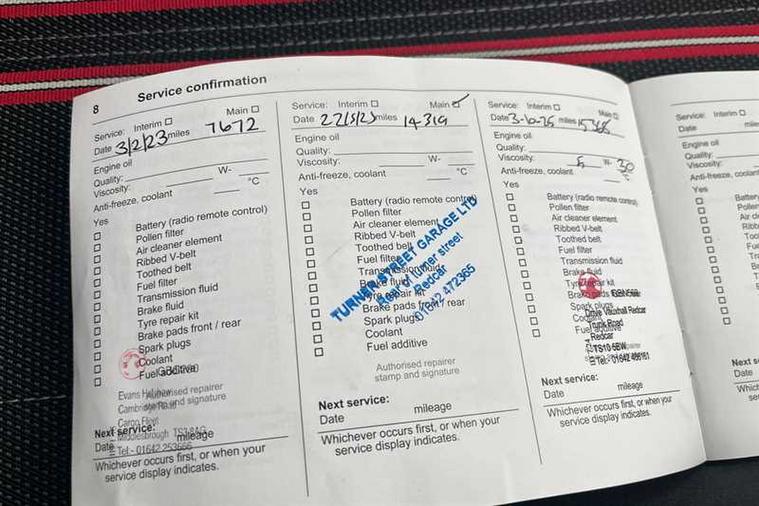 8
Service confirmation
Service: Interim ☐ Main ☐
Date 3/2/23 miles 7672
Engine oil
Quality:
Viscosity: W-
Anti-freeze, coolant °C
Yes
☐ Battery (radio remote control)
☐ Pollen filter
☐ Air cleaner element
☐ Ribbed V-belt
☐ Toothed belt
☐ Fuel filter
☐ Transmission fluid
☐ Brake fluid
☐ Tyre repair kit
☐ Brake pads front / rear
☐ Spark plugs
☐ Coolant
☐ Fuel additive
Evans Halshaw
Authorised repairer
stamp and signature
Cargo Fleet
Middlesbrough TS3 8AG
Tel - 01642 253666
Next service:
Date mileage
Whichever occurs first, or when your
service display indicates.
Service: Interim ☐ Main ☑
Date miles 14319
Engine oil
Quality:
Viscosity: W-
Anti-freeze, coolant °C
Yes
☐ Battery (radio remote control)
☐ Pollen filter
☐ Air cleaner element
☐ Ribbed V-belt
☐ Toothed belt
☐ Fuel filter
☐ Transmission fluid
☐ Brake fluid
☐ Tyre repair kit
☐ Brake pads front / rear
☐ Spark plugs
☐ Coolant
☐ Fuel additive
TURNER STREET GARAGE LTD
Rear of Turner street
Redcar
01642 472365
Authorised repairer
stamp and signature
Next service:
Date mileage
Whichever occurs first, or when your
service display indicates.
Service: Interim ☐ Main ☐
Date miles
Engine oil
Quality:
Viscosity: 5 W- 30
Anti-freeze, coolant °C
Yes
☐ Battery (radio remote control)
☐ Pollen filter
☐ Air cleaner element
☐ Ribbed V-belt
☐ Toothed belt
☐ Fuel filter
☐ Transmission fluid
☐ Brake fluid
☐ Tyre repair kit
☐ Brake pads
☐ Spark plugs
☐ Coolant
☐ Fuel additive
Drive Vauxhall Redcar
Trunk Road
Redcar
TS10 5BW
Next service:
Date mileage
Whichever occurs first, or when your
service display indicates.
Service: Interim ☐
Date
Engine oil
Quality:
Viscosity:
Anti-freeze,
Yes
Next
Date